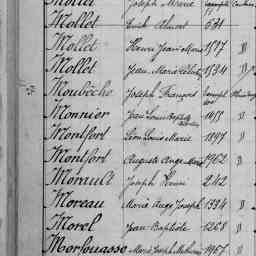 Mollet Joseph Marie
Mollet 631
Mollet Henri Jean Marie 1517 D
Mollet Jean Marie 1534 D
Moubêche Joseph François
Monnier Jean Louis Baptiste 1455 D
Montfort Léon Louis Marie 1897 D
Montfort Auguste Ange Marie 1962 D
Morault Joseph Henri 242
Moreau Marie Ange Joseph 1334 D
Morel Jean Baptiste 1268 D
Morfouasse Marie Joseph Mathurin 1967 D